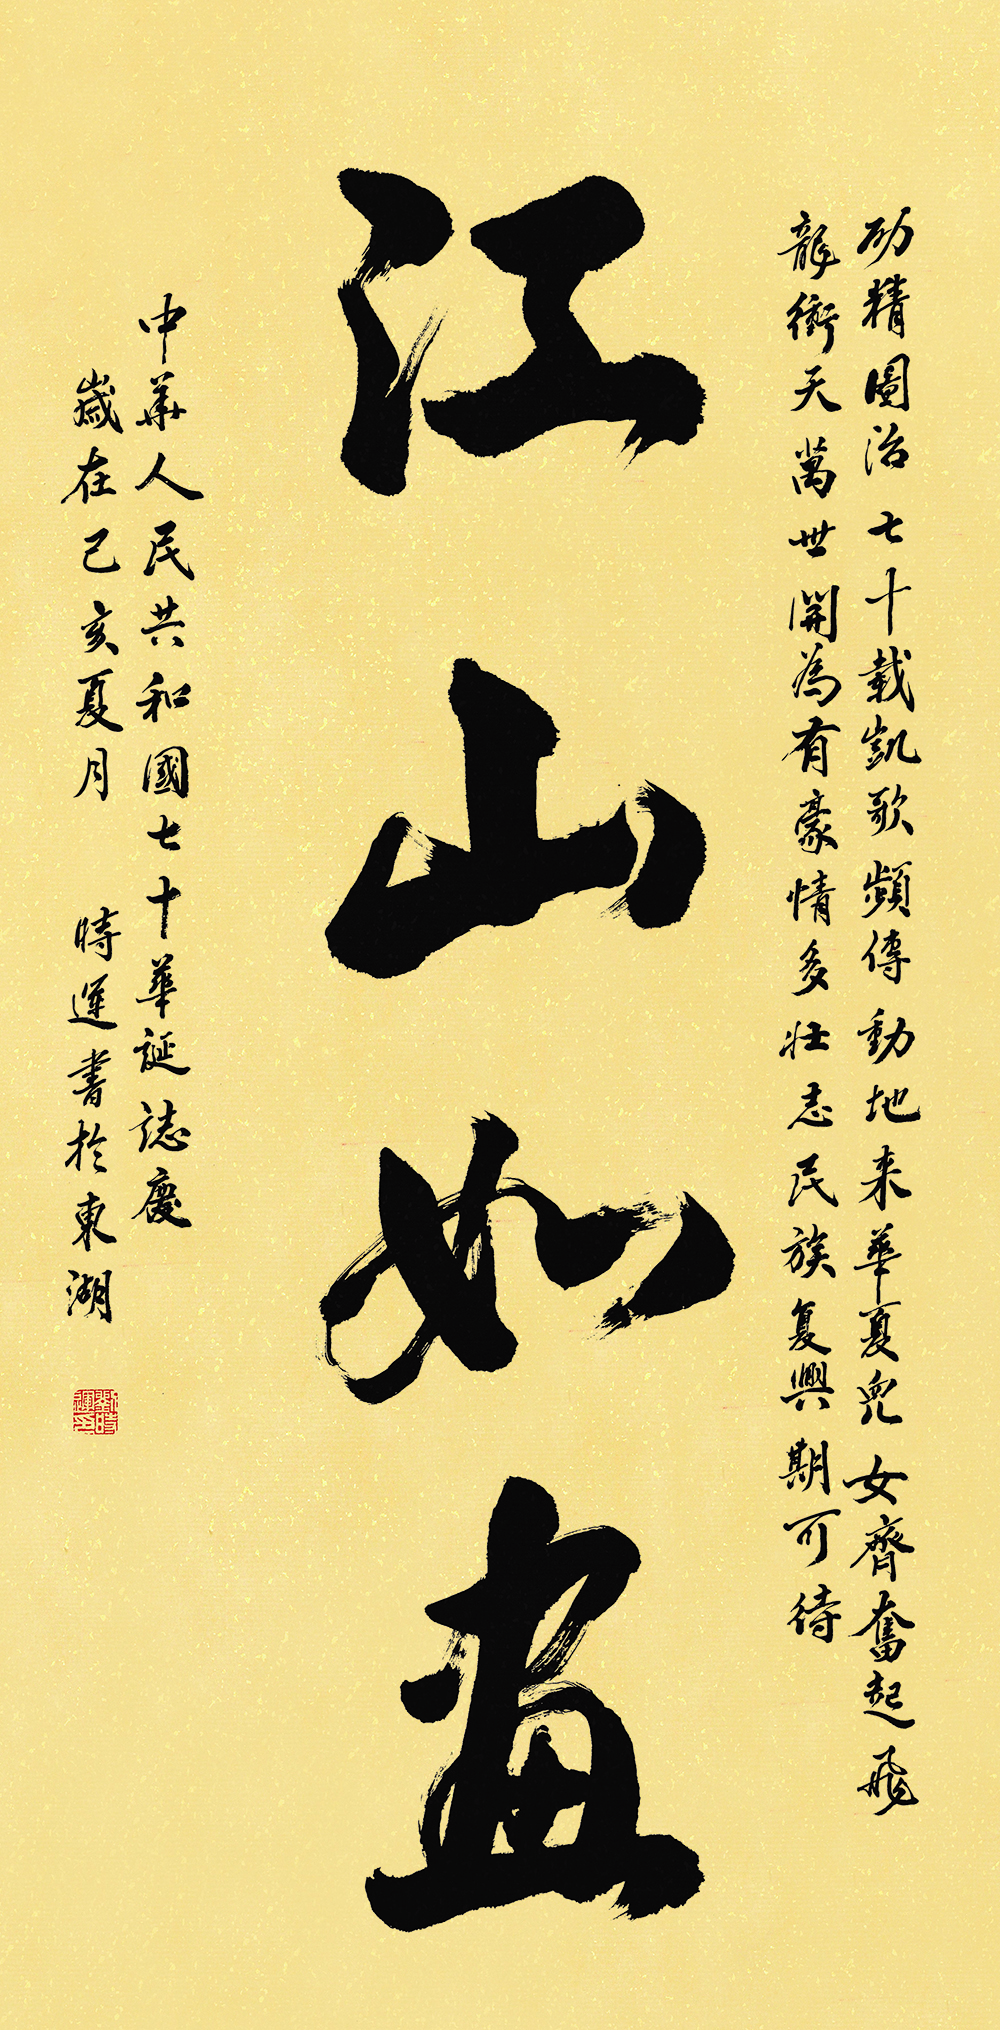 励精圖治七十載凱歌頻傳動地来華夏兒女齊奮起飛
龍衝天萬世開為有豪情多壮志民族复興期可待
江山如畫
中華人民共和國七十華誕誌慶
歲在己亥夏月 時運書於東湖